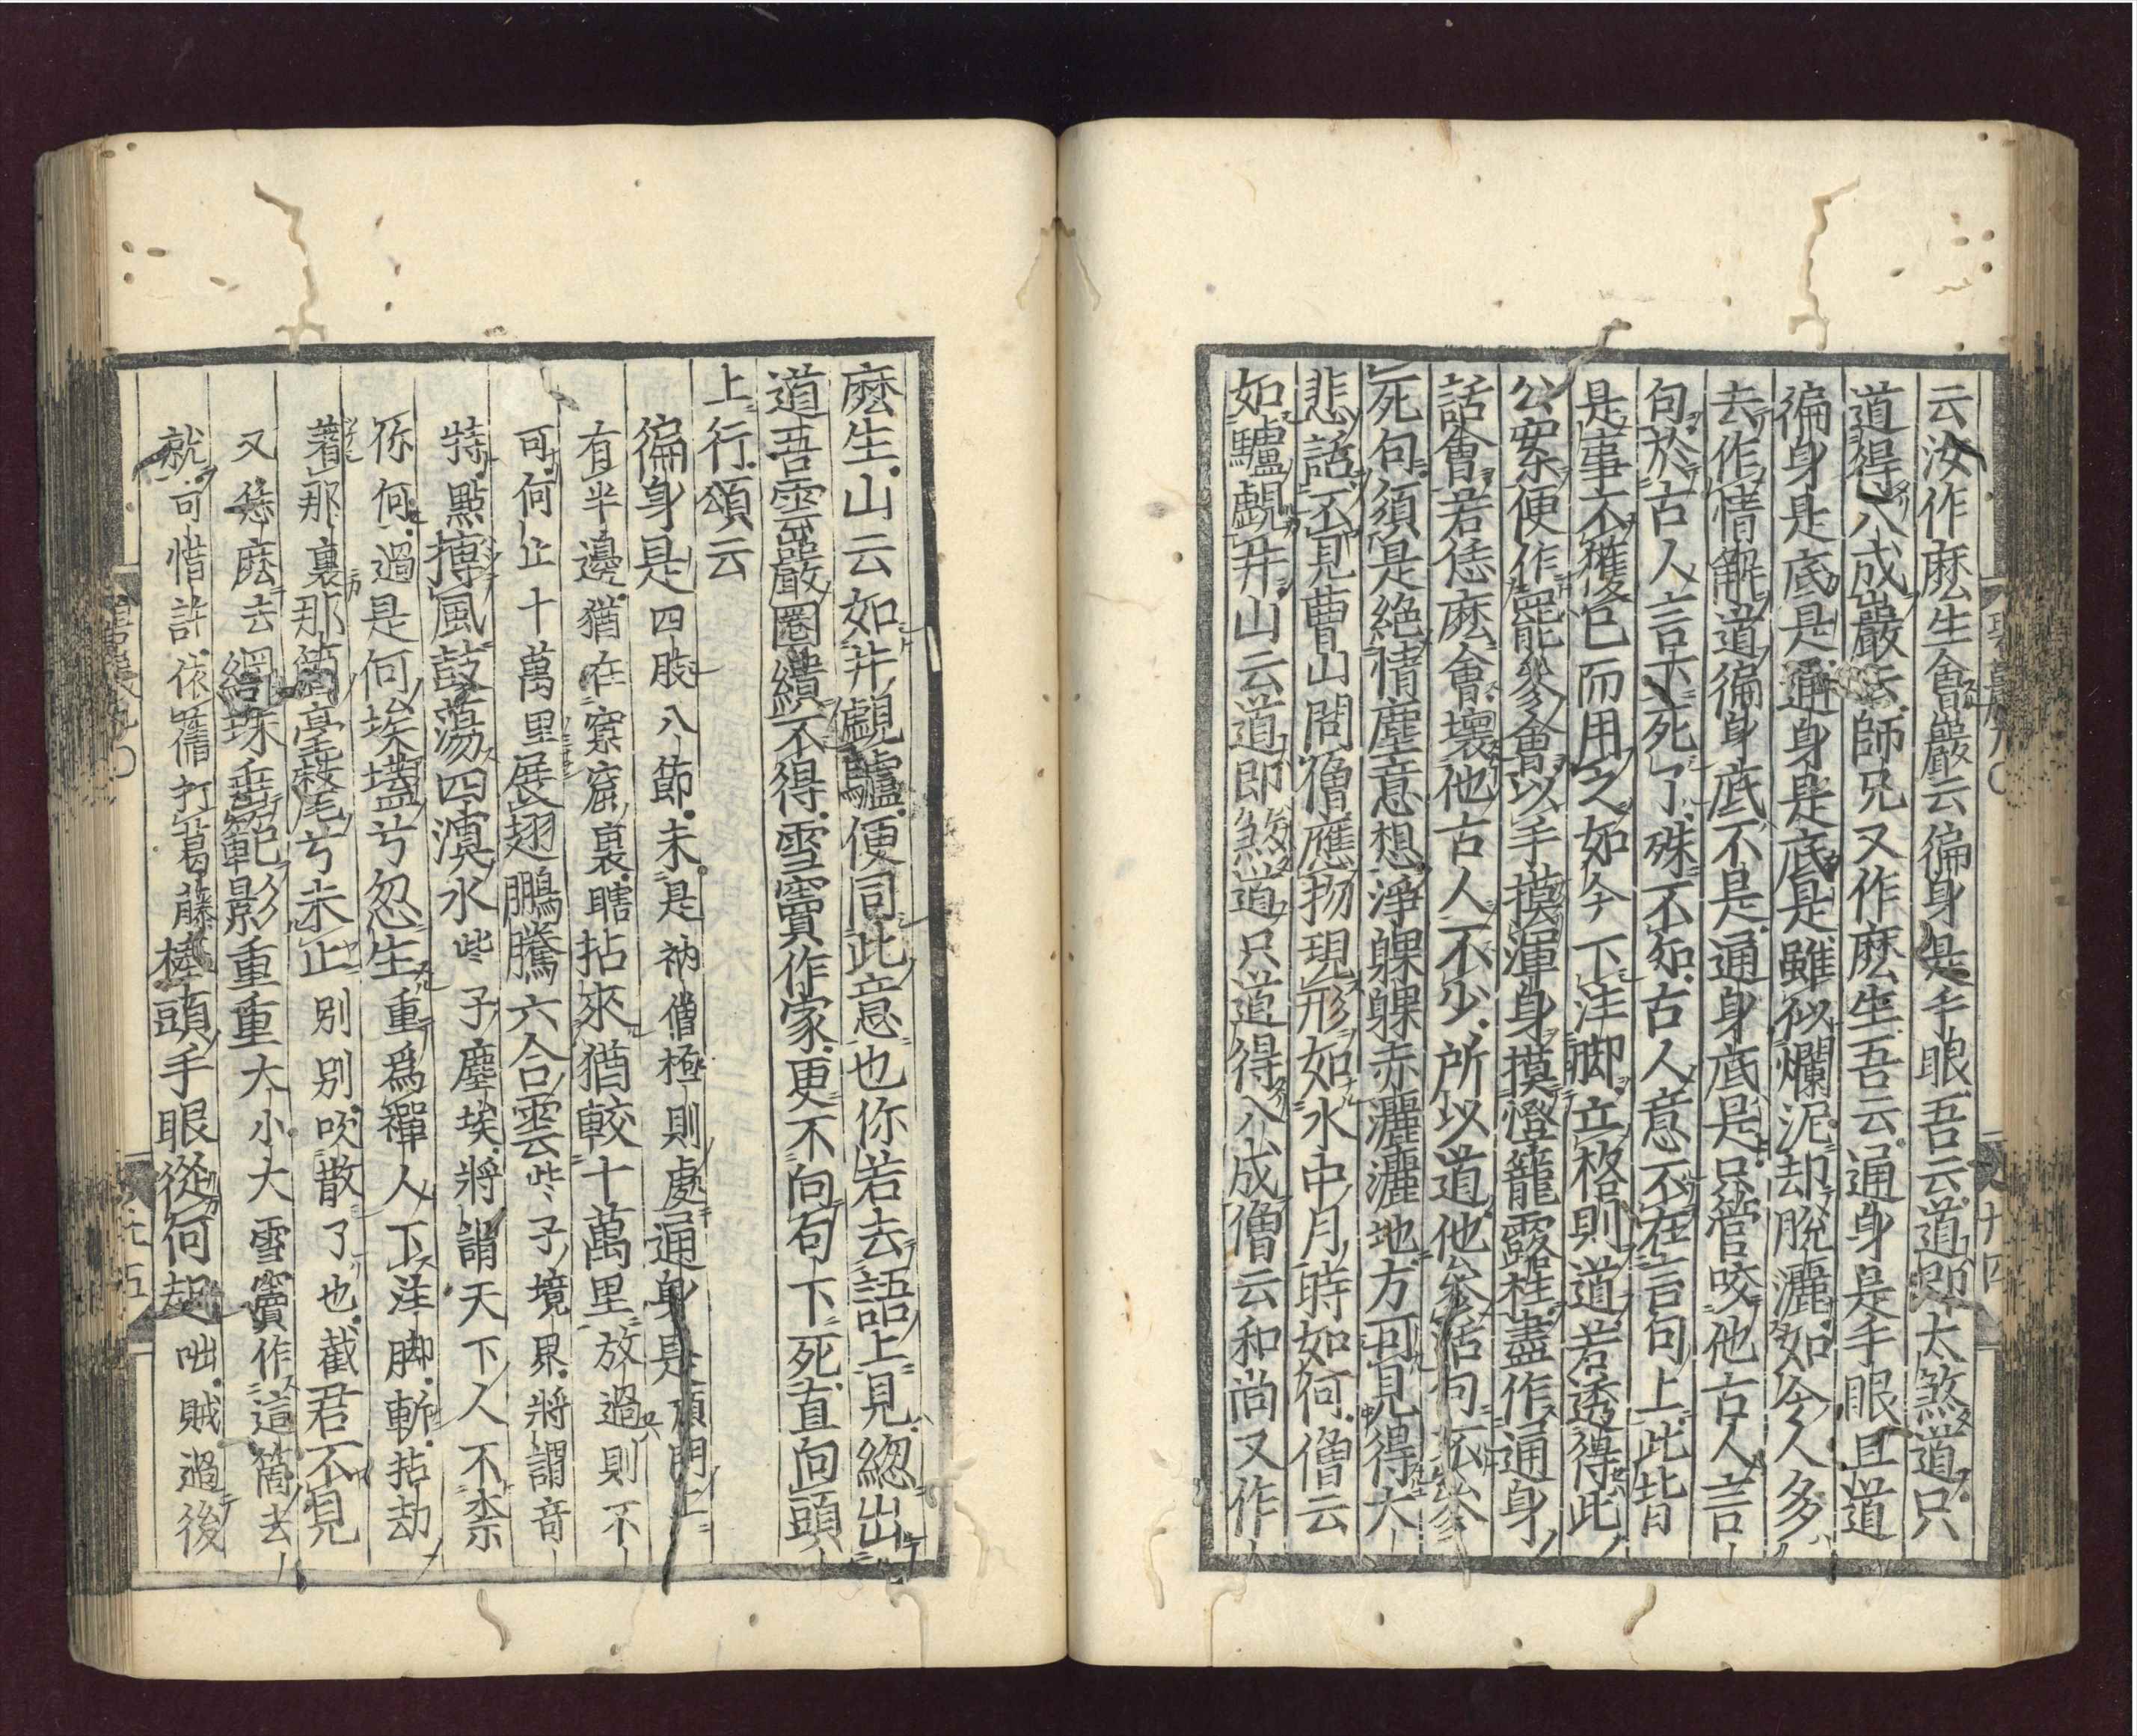 云汝作麽生會巖云徧身是手眼吾云道即太煞道只
道得八成巖云師兄又作麽生吾云通身是手眼且道
徧身是底是通身是底是雖似爛泥却脫灑如今人多
去作情解道徧身底不是通身底是只管咬他古人言
句於古人言下死了殊不知古人意不在言句上此皆
是事不獲已而用之如今下注脚立格則道若透得此
公案便作罷參會以手摸渾身摸燈籠露柱盡作通身
話會若恁麽會壞他古人不少所以道他參活句不參
死句須是絕情塵意想淨躶躶赤灑灑地方可見得大
悲話不見曹山問僧應物現形如水中月時如何僧云
如驢覷井山云道即煞道只道得八成僧云和尚又作
十四
麽生山云如井覷驢便同此意也你若去語上見緫出
道吾雲巖圈繢不得雪竇作家更不向句下死直向頭
上行頌云
徧身是四肢八節未是衲僧極則處通身是頂門上
有半邊猶在窠窟裏瞎拈來猶較十萬里放過則不
可何止十萬里展翅鵬騰六合雲些子境界將謂奇
特點搏風鼓蕩四溟水些子塵埃將謂天下人不柰
你何過是何埃壒兮忽生重爲禪人下注脚斬拈却
著那裏那箇毫氂兮未止別別吹散了也截君不見
又恁麽去網珠垂範影重重大小大雪竇作這箇去
就可惜許依舊打葛藤棒頭手眼從何起咄賊過後